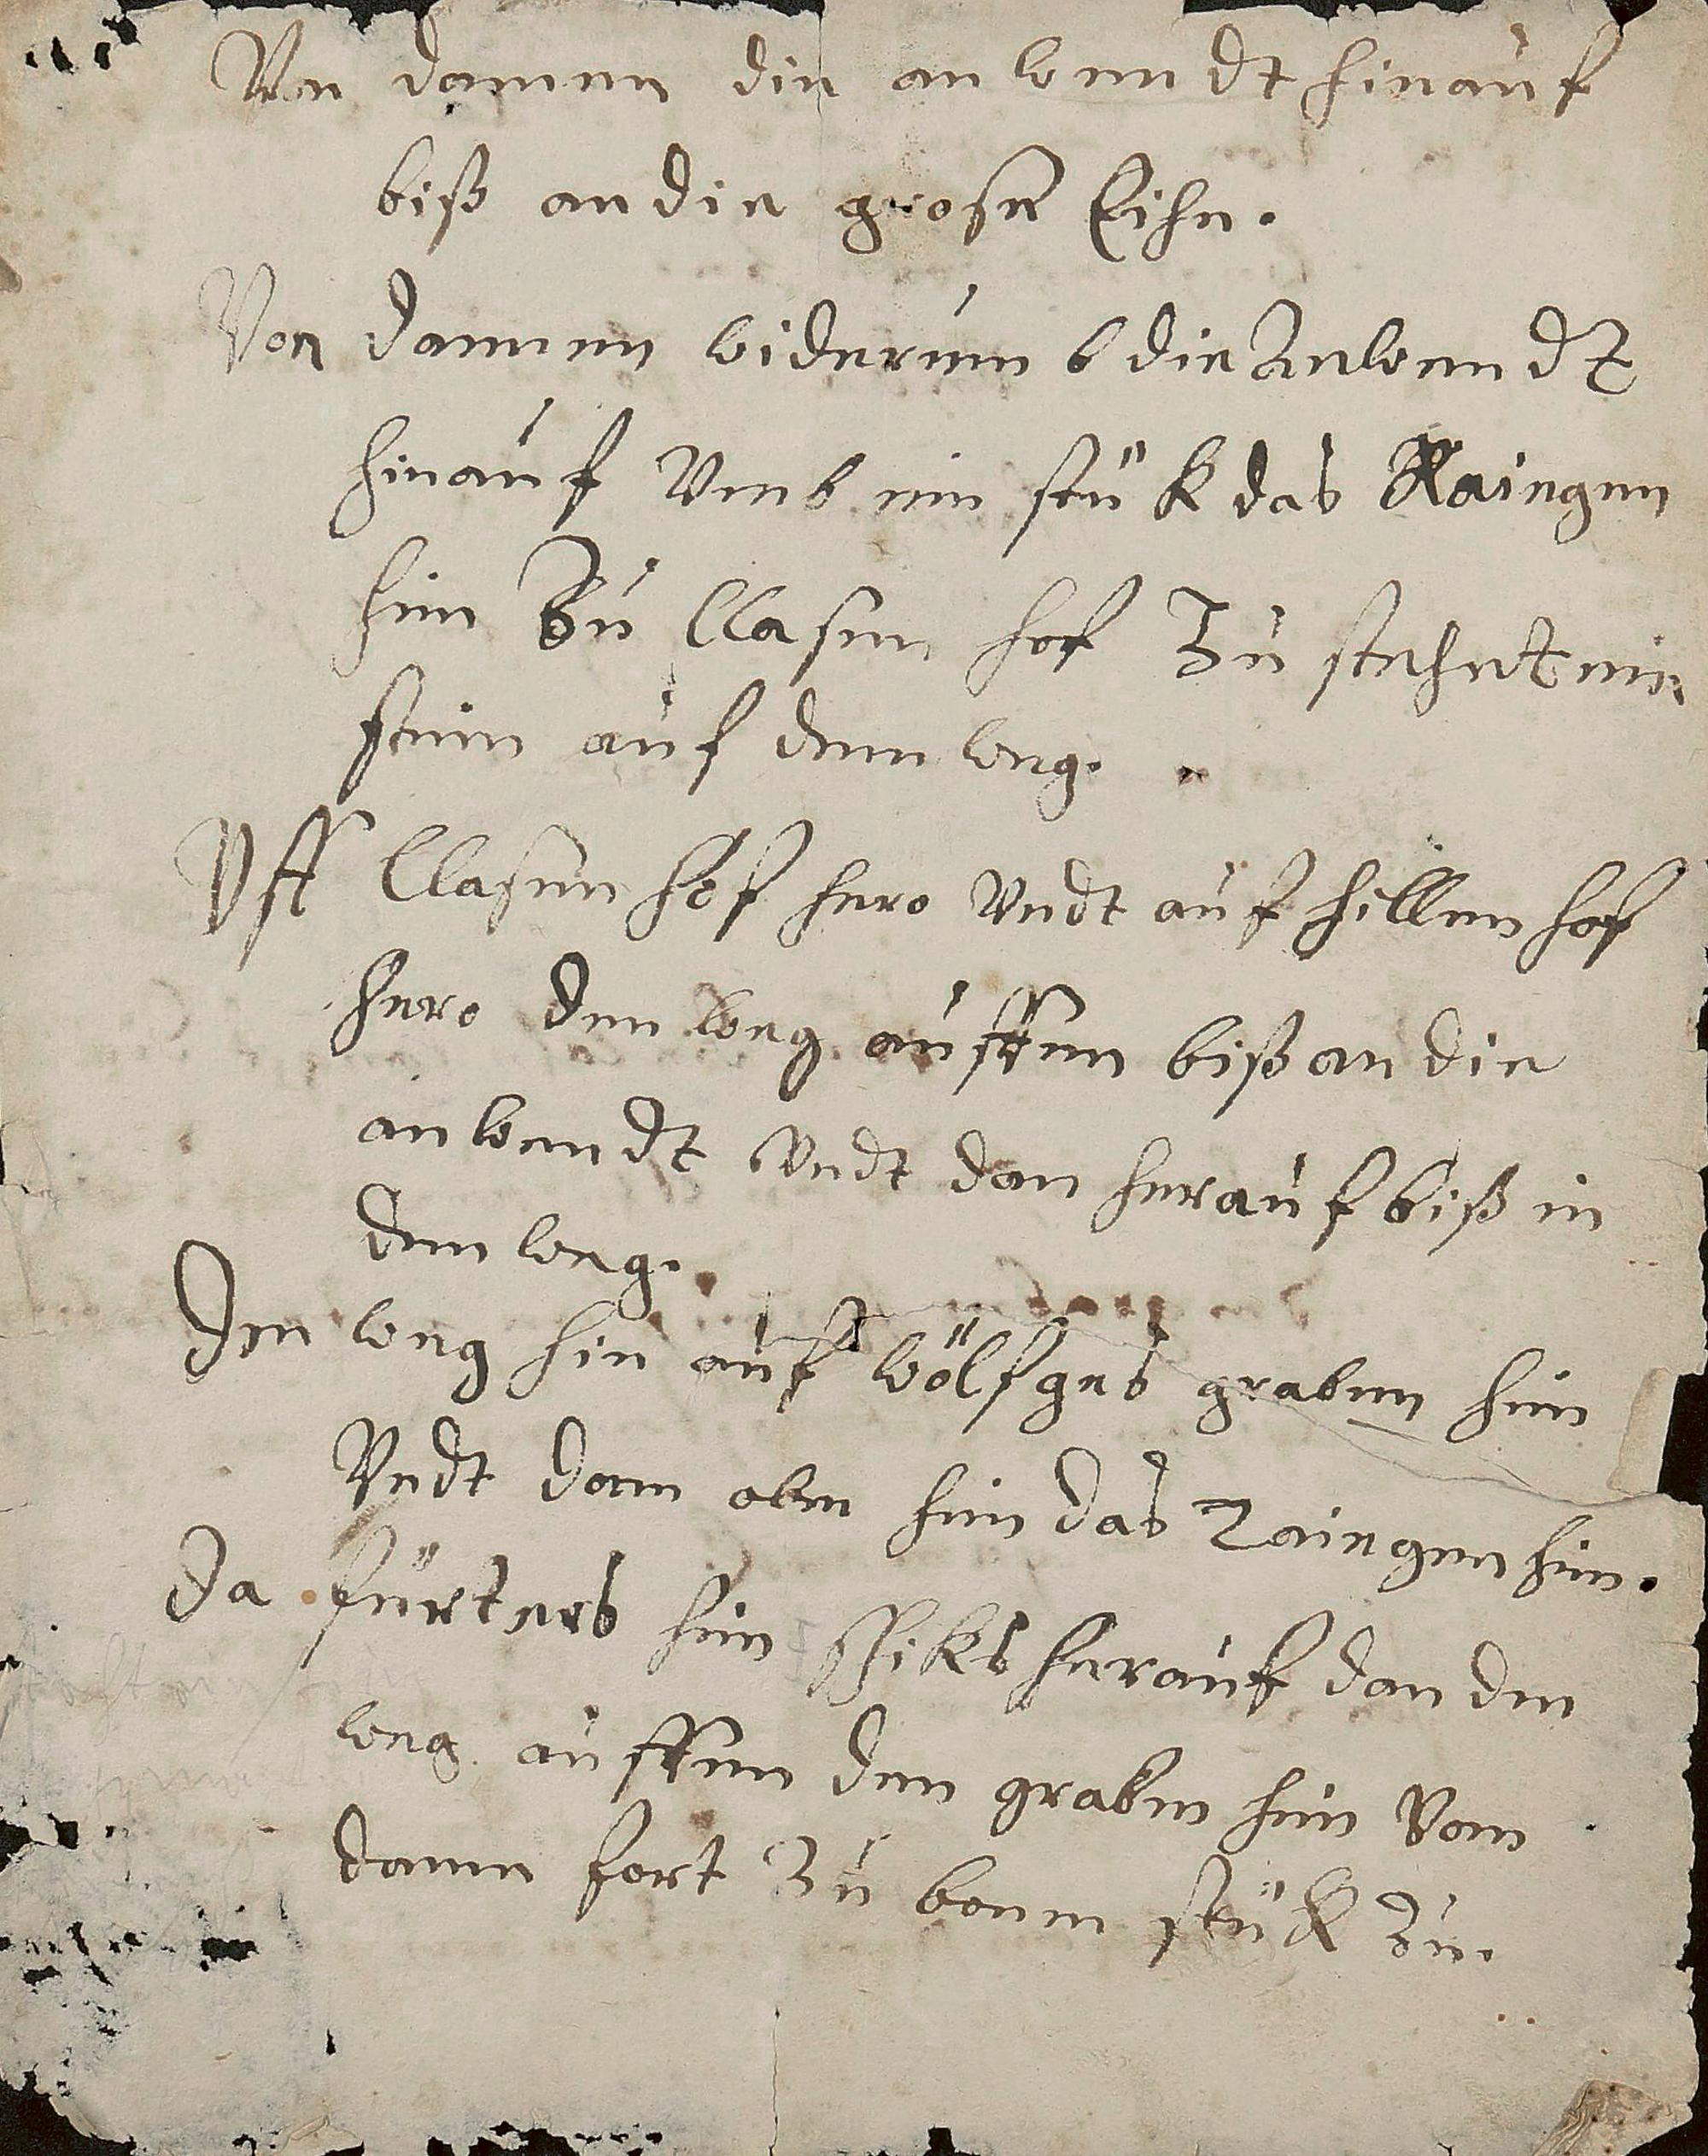 Von dannen die anwendt hinauf
biß an die grose Eihe.
Von dannen widerumb die Anwendt
hinauf Vmb ein stük das Raingen
hin Zu Clasen hof Zu stehet ein
stein auf dem weg.
Vff Clasen hof hero Vndt auf hillen hof
hero den weg auffen biß an die
anwendt Vndt dan herauf biß in
den weg.
Den weg hin auf wölfges graben hin
Vndt dan oben hin das Raingen hin.
Da fürters hin herauf dan den
weg auffen den graben hin Von
danne fort Zu stük Zu.